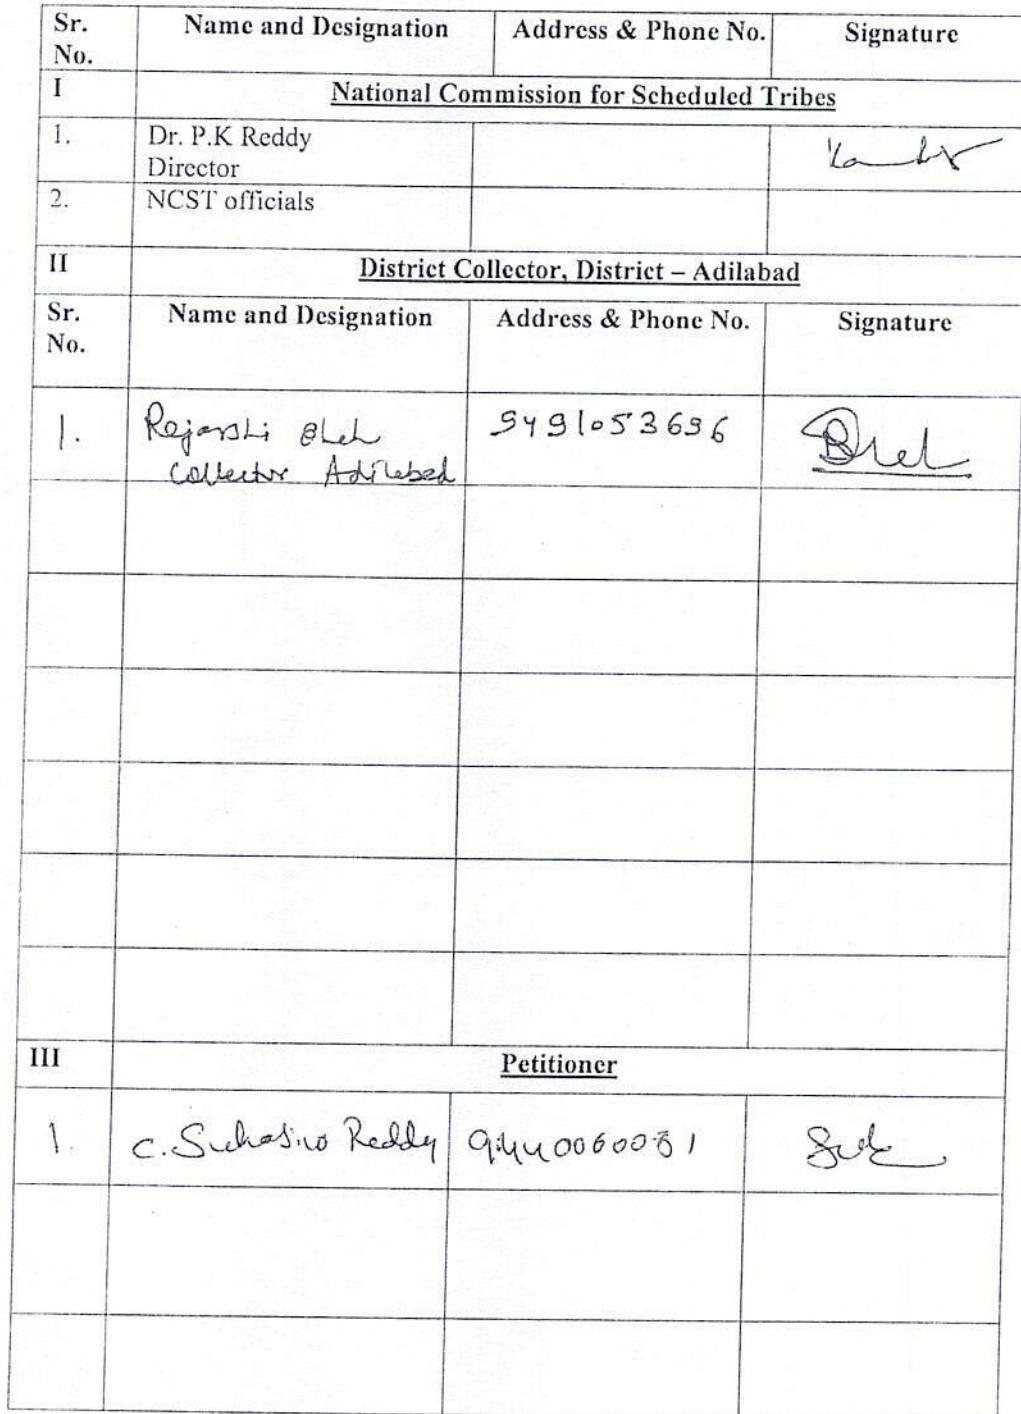 Sr. No. Name and Designation Address & Phone No. Signature
I National Commission for Scheduled Tribes
1. Dr. P.K Reddy
Director
2. NCST officials
II District Collector, District – Adilabad
Sr. No. Name and Designation Address & Phone No. Signature
1. Rajarshi Shah 9491053696
Collector Adilabad
III Petitioner
1. C. Suhasini Reddy